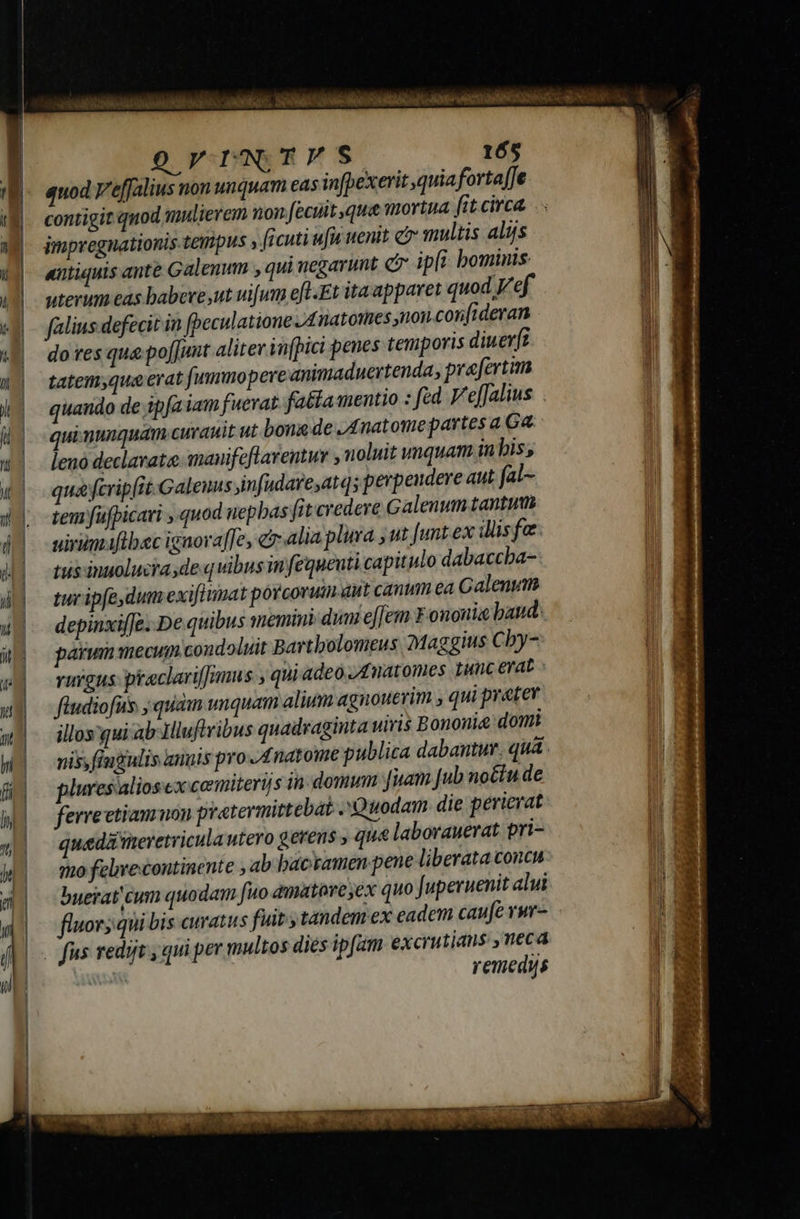 QVINTVS 165
quod Veſſalius non unquam eas inſpexerit, quia fortaſſe
contigit quod mulierem non ſecuit, quæ mortua ſit circa
impregnationis tempus, ſicuti uſu uenit & multis alijs
antiquis ante Galenum, qui negarunt & ipſi hominis
uterum eas habere, ut uiſum eſt. Et ita apparet quod Veſ
ſalius defecit in ſpeculatione Anatomes, non conſideran
do res quæ poſſunt aliter inſpici penes temporis diuerſi
tatem, quæ erat ſummopere animaduertenda, præſertim
quando de ipſa iam fuerat facta mentio: ſed Veſſalius
qui nunquam curauit ut bonæ de Anatome partes a Ga
leno declaratæ manifeſtarentur, noluit unquam in his,
quæ ſcripſit Galenus, inſudare, atq; perpendere aut ſal-
tem ſuſpicari, quod nephas ſit credere Galenum tantum
uirum iſthæc ignoraſſe, & alia plura, ut ſunt ex illis fœ
tus inuolucra, de quibus in ſequenti capitulo dabaccha-
tur ipſe, dum exiſtimat porcorum aut canum ea Galenum
depinxiſſe. De quibus memini dum eſſem Bononiæ haud
parum mecum condoluit Bartholomeus Maggius Chy-
rurgus præclariſſimus, qui adeo Anatomes tunc erat
ſtudioſus, quàm unquam alium agnouerim, qui præter
illos qui ab Illuſtribus quadraginta uiris Bononiæ domi
nis, ſingulis annis pro Anatome publica dabantur, quã
plures alios ex cœmiterijs in domum ſuam ſub noctu de
ferre etiam non prætermittebat. Quodam die perierat
quædã meretricula utero gerens, quæ laborauerat pri-
mo febre continente, ab hac tamen pene liberata concu
buerat cum quodam ſuo amatore, ex quo ſuperuenit alui
fluor, qui bis curatus fuit, tandem ex eadem cauſe rur-
ſus redijt, qui per multos dies ipſam excrutians, nec a
remedijs